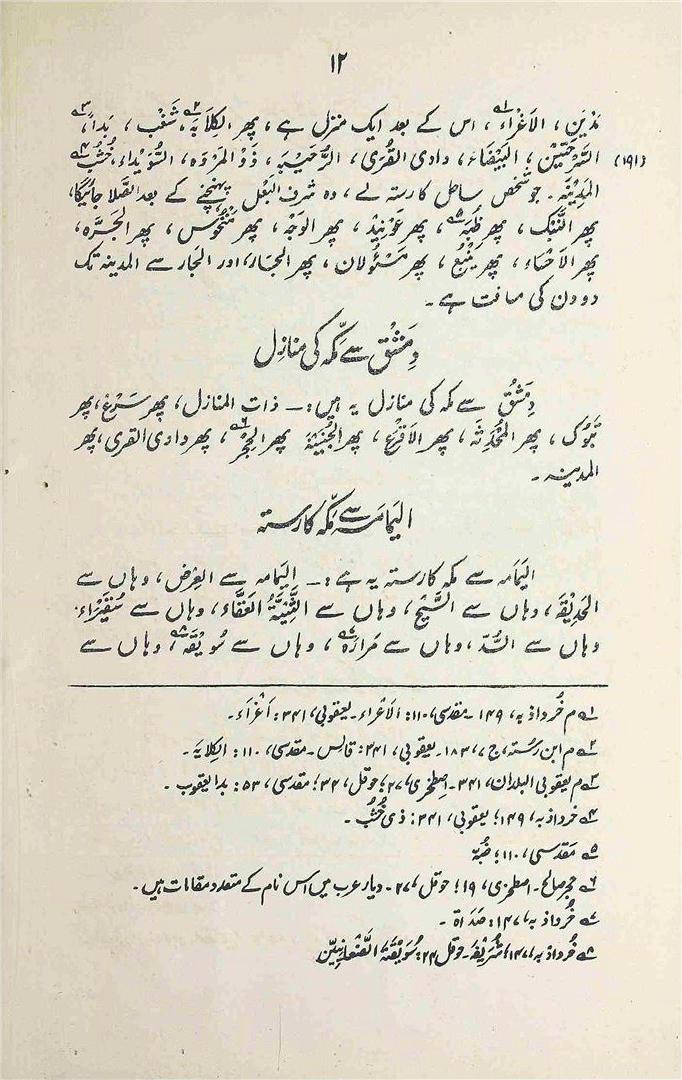 ۱۲
مَدْیَن، الاَغْرَاء۱؎، اس کے بعد ایک منزل ہے، پھر الکِلَابَہ۲؎، شَغْب، بَدا۳؎،
(۱۹۱) السَّرحَتَیْن، البَیْضَاء، وادی القُریٰ، الرُّحَیْبَہ، ذُو المَرْوَہ، السُّوَیْداء، خُشُب۴؎
المَدِیْنَہ۔ جو شخص ساحل کا رستہ لے، وہ شرف البَعْل پہنچنے کے بعد الصَّلا جائیگا،
پھر النَّبْک، پھر ظَبَہ۵؎، پھر عَوْنِید، پھر الوَجْہ، پھر مَنْخُوس، پھر الحَسَرَہ،
پھر الاَحْسَاء، پھر یَنْبُع، پھر مَسْئُولان، پھر الجَار، اور الجار سے المدینہ تک
دو دن کی مسافت ہے۔
دِمَشْق سے مکّہ کی منازِل
دِمَشْق سے مکہ کی منازل یہ ہیں:۔ ذات المنازل، پھر سَرْغ، پھر
تَبُوک، پھر المُحْدَثَہ، پھر الاَقْرَع، پھر الجُنَیْنَۃ پھر الحِجْر۶؎، پھر وادی القری، پھر
المدینہ۔
الیمامَہ سے مکّہ کا رستہ
الیَمَامَہ سے مکہ کا رستہ یہ ہے:۔ الیمامہ سے العِرْض، وہاں سے
الحَدِیْقَہ، وہاں سے السَّیْح، وہاں سے الثَّنِیَّۃُ العَقَّاء، وہاں سے سُقَیْرَاء،
وہاں سے السُّدّ، وہاں سے مَرارَہ۷؎، وہاں سے سُوَیْقَہ۸؎، وہاں سے
۱؎ م خُرداذبہ، ۱۴۹۔ مقدسی، ۱۱۰: الاَغْراء۔ یعقوبی، ۳۴۱: اَغْرَاء۔
۲؎ م ابن رُستہ، ج ۷، ۱۸۳۔ یعقوبی، ۳۴۱: قالس۔ مقدسی، ۱۱۰: الکلایہ۔
۳؎ م یعقوبی البلدان، ۳۴۱۔ اصطخری، ۲۷؛ حوقل، ۳۲؛ مقدسی، ۵۳: بدا یعقوب۔
۴؎ خرداذبہ، ۱۴۹؛ یعقوبی، ۳۴۱: ذی خُشُب۔
۵؎ مَقدسی، ۱۱۰؛ ضَبَّۃ
۶؎ حجر صالح۔ اصطخری، ۱۹؛ حوقل، ۲۷۔ دیار عرب میں اس نام کے متعدد مقامات ہیں۔
۷؎ خُرداذبہ، ۱۴۷: صَدَاۃ۔
۸؎ خُرداذبہ، ۱۴۷؛ شُرَیْفَہ۔ حوقل، ۲۴: سُوَیْقَۃ